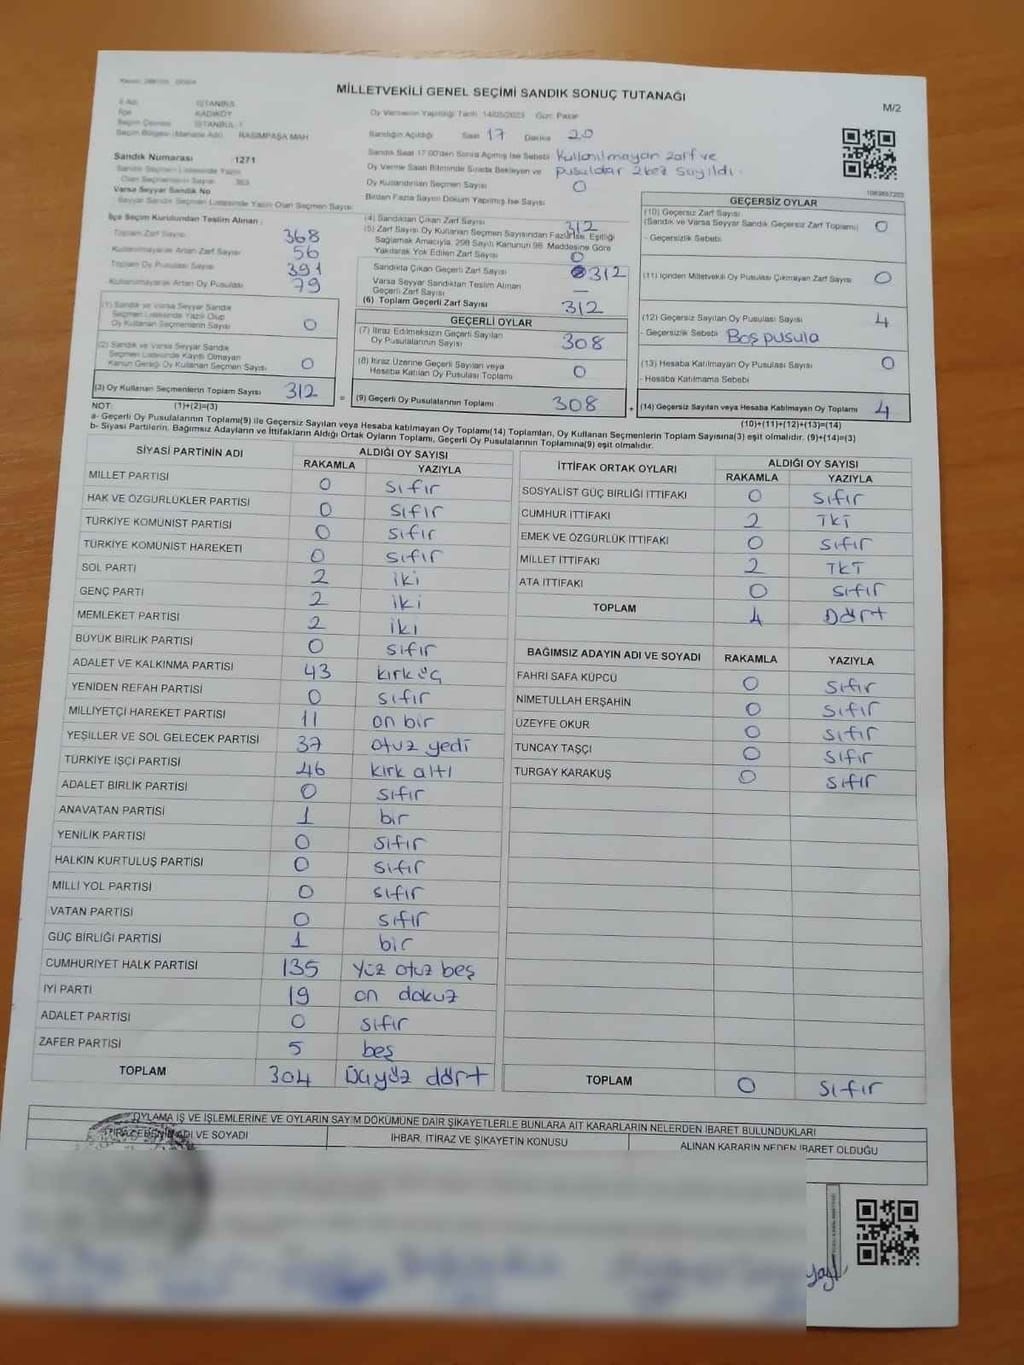 MİLLETVEKİLİ GENEL SEÇİMİ SANDIK SONUÇ TUTANAĞI
M/2
İl Adı İSTANBUL
İlçe KADIKÖY
Seçim Çevresi İSTANBUL-1
Seçim Bölgesi (Mahalle Adı) RASİMPAŞA MAH
Sandık Numarası :1271
Sandık Seçmen Listesinde Yazılı
Olan Seçmenlerin Sayısı 363
Varsa Seyyar Sandık No
Seyyar Sandık Seçmen Listesinde Yazılı Olan Seçmen Sayısı
Oy Vermenin Yapıldığı Tarih: 14/05/2023 Gün: Pazar
Sandığın Açıldığı Saat 17 Dakika 20
Sandık Saat 17:00'den Sonra Açılmış İse Sebebi Kullanılmayan zarf ve
pusulalar 2 kez sayıldı.
Oy Verme Saati Bitiminde Sırada Bekleyen ve
Oy Kullandırılan Seçmen Sayısı 0
Birden Fazla Sayım Döküm Yapılmış İse Sayısı
İlçe Seçim Kurulundan Teslim Alınan :
Toplam Zarf Sayısı 368
Kullanılmayarak Artan Zarf Sayısı 56
Toplam Oy Pusulası Sayısı 391
Kullanılmayarak Artan Oy Pusulası 79
(1) Sandık ve Varsa Seyyar Sandık
Seçmen Listesinde Yazılı Olup
Oy Kullanan Seçmenlerin Sayısı 0
(2) Sandık ve Varsa Seyyar Sandık
Seçmen Listesinde Kaydı Olmayan
Kanun Gereği Oy Kullanan Seçmen Sayısı 0
(3) Oy Kullanan Seçmenlerin Toplam Sayısı 312
(4) Sandıktan Çıkan Zarf Sayısı 312
(5) Zarf Sayısı Oy Kullanan Seçmen Sayısından Fazla İse, Eşitliği
Sağlamak Amacıyla, 298 Sayılı Kanunun 98. Maddesine Göre
Yakılarak Yok Edilen Zarf Sayısı 0
Sandıkta Çıkan Geçerli Zarf Sayısı 312
Varsa Seyyar Sandıktan Teslim Alınan
Geçerli Zarf Sayısı —
(6) Toplam Geçerli Zarf Sayısı 312
GEÇERLİ OYLAR
(7) İtiraz Edilmeksizin Geçerli Sayılan
Oy Pusulalarının Sayısı 308
(8) İtiraz Üzerine Geçerli Sayılan veya
Hesaba Katılan Oy Pusulası Toplamı 0
= (9) Geçerli Oy Pusulalarının Toplamı 308
1083657203
GEÇERSİZ OYLAR
(10) Geçersiz Zarf Sayısı
(Sandık ve Varsa Seyyar Sandık Geçersiz Zarf Toplamı) 0
- Geçersizlik Sebebi
(11) İçinden Milletvekili Oy Pusulası Çıkmayan Zarf Sayısı 0
(12) Geçersiz Sayılan Oy Pusulası Sayısı 4
- Geçersizlik Sebebi Boş pusula
(13) Hesaba Katılmayan Oy Pusulası Sayısı 0
- Hesaba Katılmama Sebebi
+ (14) Geçersiz Sayılan veya Hesaba Katılmayan Oy Toplamı 4
NOT: (1)+(2)=(3)
(10)+(11)+(12)+(13)=(14)
a- Geçerli Oy Pusulalarının Toplamı(9) ile Geçersiz Sayılan veya Hesaba katılmayan Oy Toplamı(14) Toplamları, Oy Kullanan Seçmenlerin Toplam Sayısına(3) eşit olmalıdır. (9)+(14)=(3)
b- Siyasi Partilerin, Bağımsız Adayların ve İttifakların Aldığı Ortak Oyların Toplamı, Geçerli Oy Pusulalarının Toplamına(9) eşit olmalıdır.
SİYASİ PARTİNİN ADI ALDIĞI OY SAYISI
RAKAMLA YAZIYLA
MİLLET PARTİSİ 0 sıfır
HAK VE ÖZGÜRLÜKLER PARTİSİ 0 sıfır
TÜRKİYE KOMÜNİST PARTİSİ 0 sıfır
TÜRKİYE KOMÜNİST HAREKETİ 0 sıfır
SOL PARTİ 2 iki
GENÇ PARTİ 2 iki
MEMLEKET PARTİSİ 2 iki
BÜYÜK BİRLİK PARTİSİ 0 sıfır
ADALET VE KALKINMA PARTİSİ 43 kırk üç
YENİDEN REFAH PARTİSİ 0 sıfır
MİLLİYETÇİ HAREKET PARTİSİ 11 on bir
YEŞİLLER VE SOL GELECEK PARTİSİ 37 otuz yedi
TÜRKİYE İŞÇİ PARTİSİ 46 kırk altı
ADALET BİRLİK PARTİSİ 0 sıfır
ANAVATAN PARTİSİ 1 bir
YENİLİK PARTİSİ 0 sıfır
HALKIN KURTULUŞ PARTİSİ 0 sıfır
MİLLİ YOL PARTİSİ 0 sıfır
VATAN PARTİSİ 0 sıfır
GÜÇ BİRLİĞİ PARTİSİ 1 bir
CUMHURİYET HALK PARTİSİ 135 Yüz otuz beş
İYİ PARTİ 19 on dokuz
ADALET PARTİSİ 0 sıfır
ZAFER PARTİSİ 5 beş
TOPLAM 304 Üçyüz dört
İTTİFAK ORTAK OYLARI ALDIĞI OY SAYISI
RAKAMLA YAZIYLA
SOSYALİST GÜÇ BİRLİĞİ İTTİFAKI 0 sıfır
CUMHUR İTTİFAKI 2 İKİ
EMEK VE ÖZGÜRLÜK İTTİFAKI 0 sıfır
MİLLET İTTİFAKI 2 İKİ
ATA İTTİFAKI 0 sıfır
TOPLAM 4 Dört
BAĞIMSIZ ADAYIN ADI VE SOYADI RAKAMLA YAZIYLA
FAHRİ SAFA KÜPCÜ 0 sıfır
NİMETULLAH ERŞAHİN 0 sıfır
ÜZEYFE OKUR 0 sıfır
TUNCAY TAŞÇI 0 sıfır
TURGAY KARAKUŞ 0 sıfır
TOPLAM 0 sıfır
OYLAMA İŞ VE İŞLEMLERİNE VE OYLARIN SAYIM DÖKÜMÜNE DAİR ŞİKAYETLERLE BUNLARA AİT KARARLARIN NELERDEN İBARET BULUNDUKLARI
İTİRAZ EDENİN ADI VE SOYADI İHBAR, İTİRAZ VE ŞİKAYETİN KONUSU ALINAN KARARIN NEDEN İBARET OLDUĞU